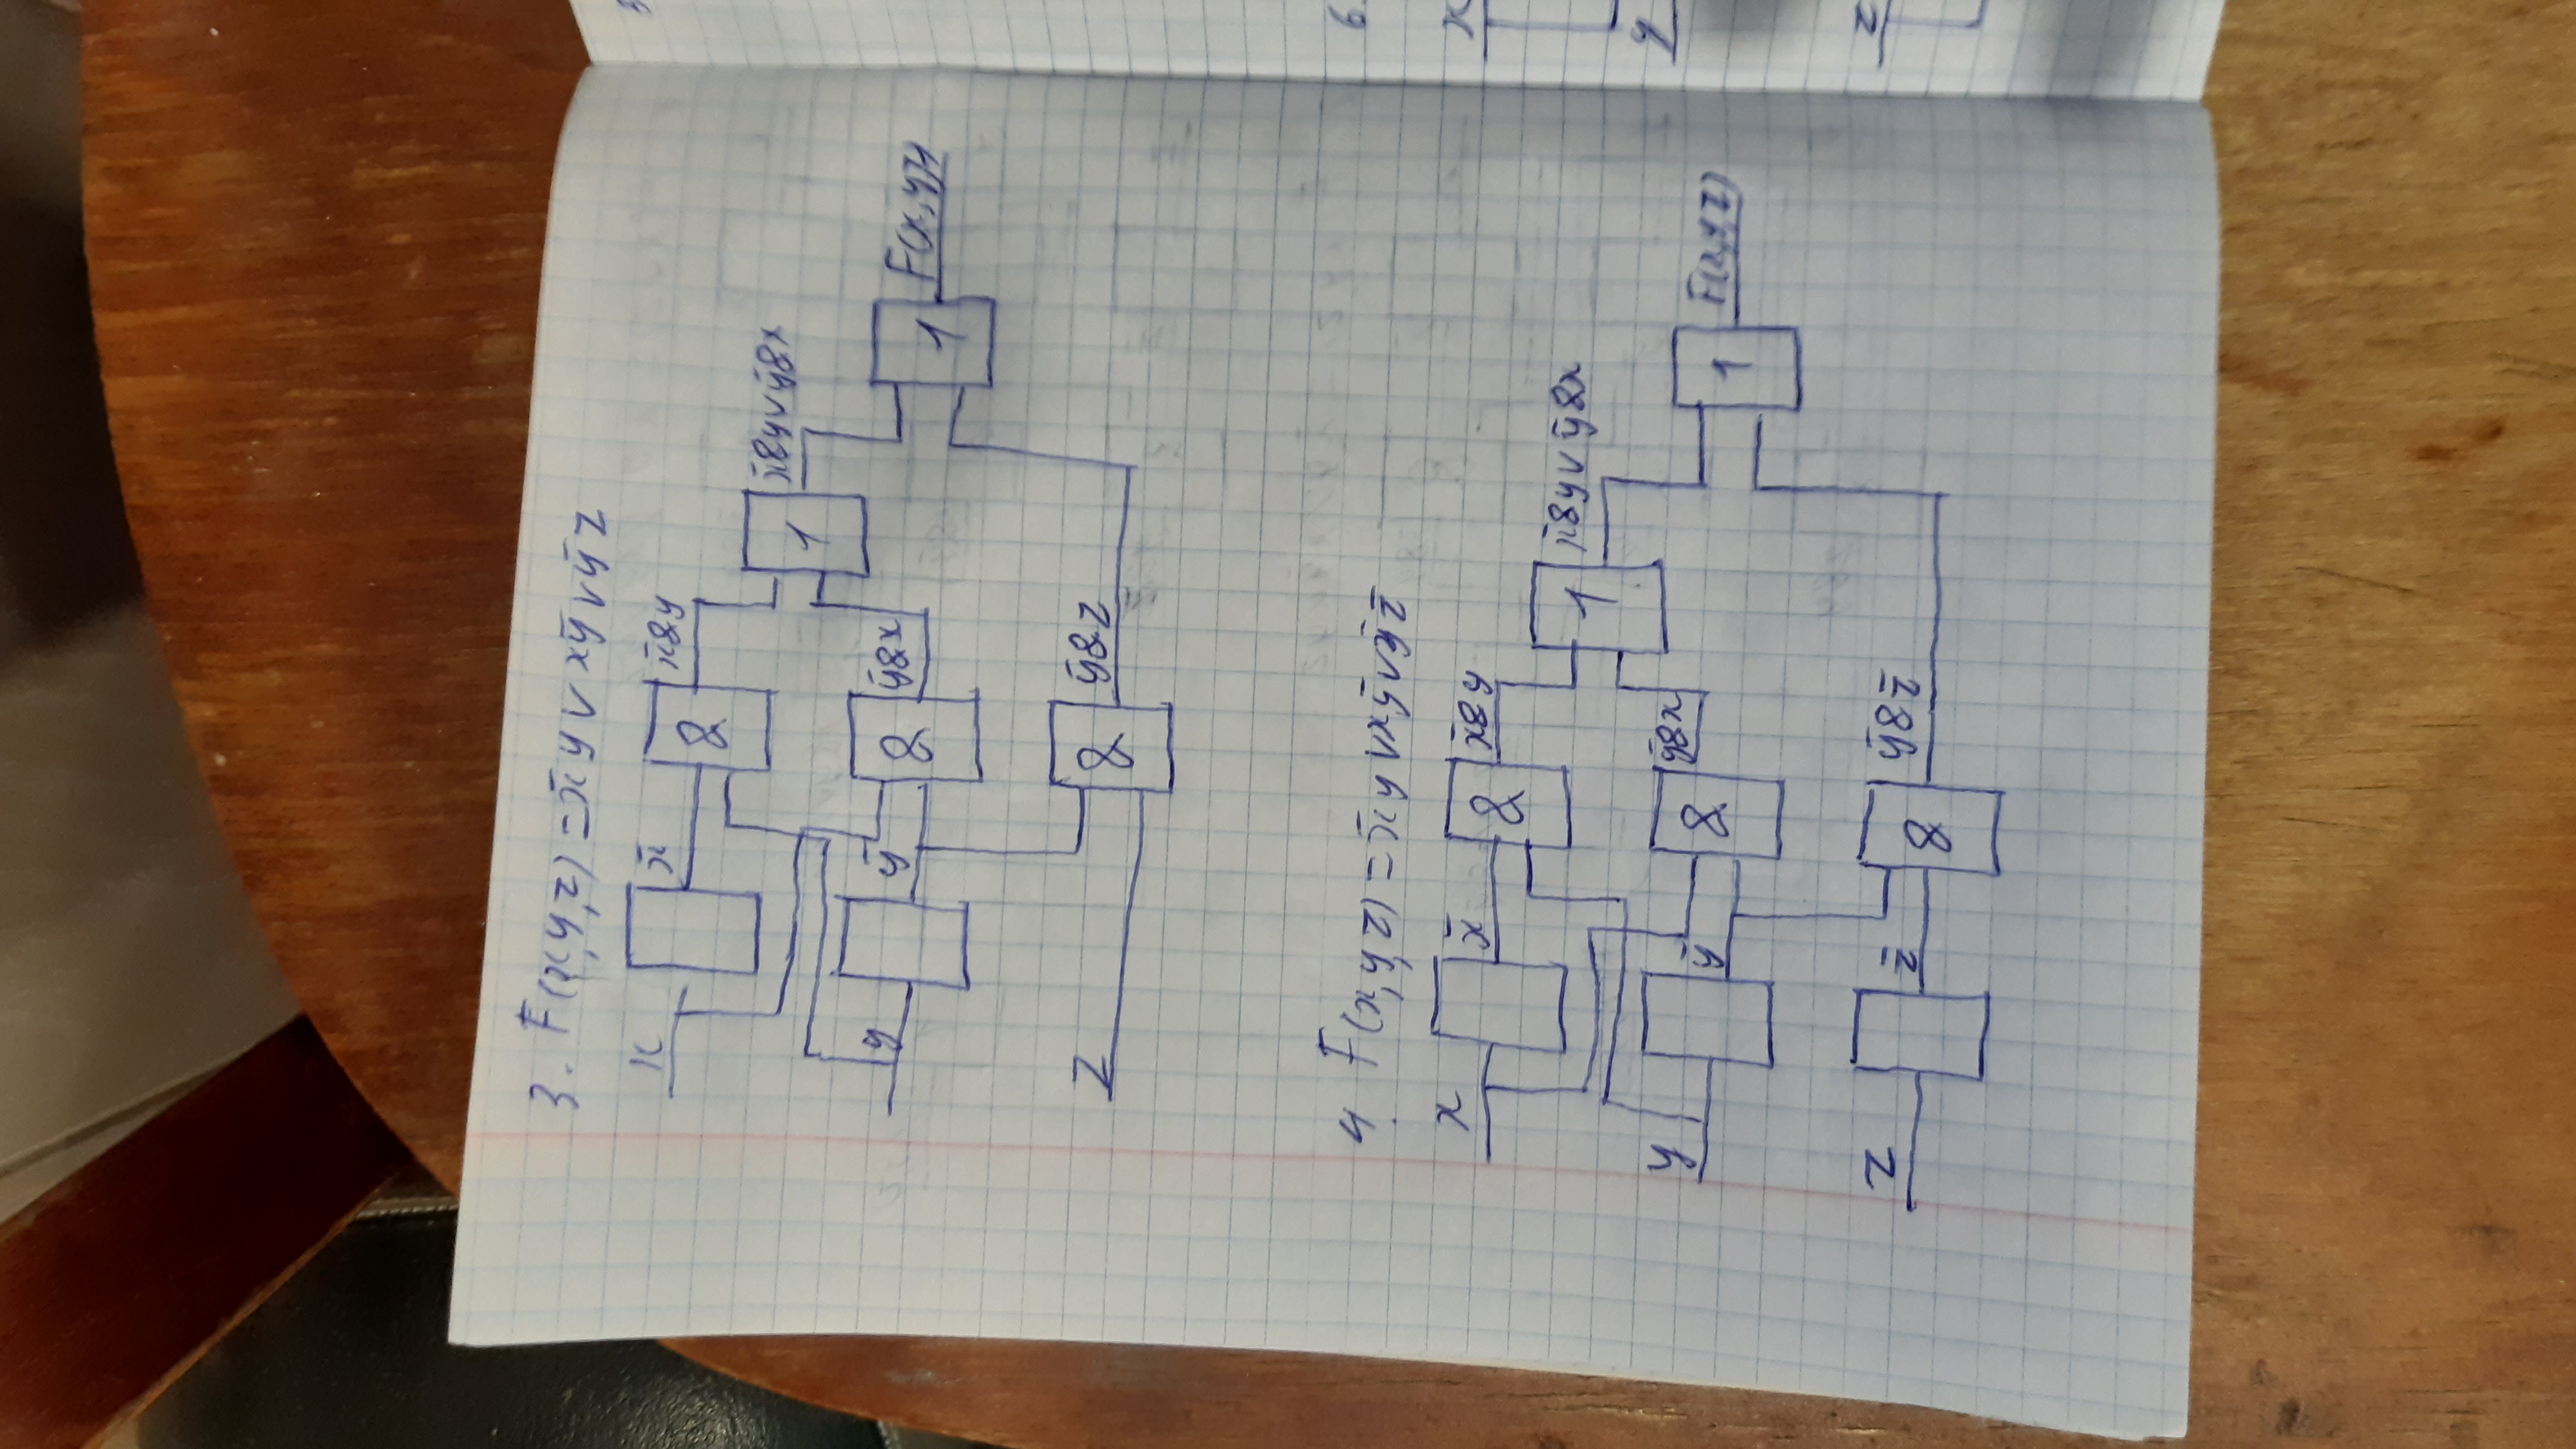 3. F(x,y,z) = x̄y ∨ xȳ ∨ ȳz
x
x̄
&
x̄&y
1
x̄&y ∨ ȳ&x
y
ȳ
&
ȳ&x
1
F(x,y,z)
z
&
ȳ&z
4. F(x,y,z) = x̄y ∨ xȳ ∨ ȳz̄
x
x̄
&
x̄&y
1
x̄&y ∨ ȳ&x
y
ȳ
&
ȳ&x
1
F(x,y,z)
z
z̄
&
ȳ&z̄
6.
x
y
z